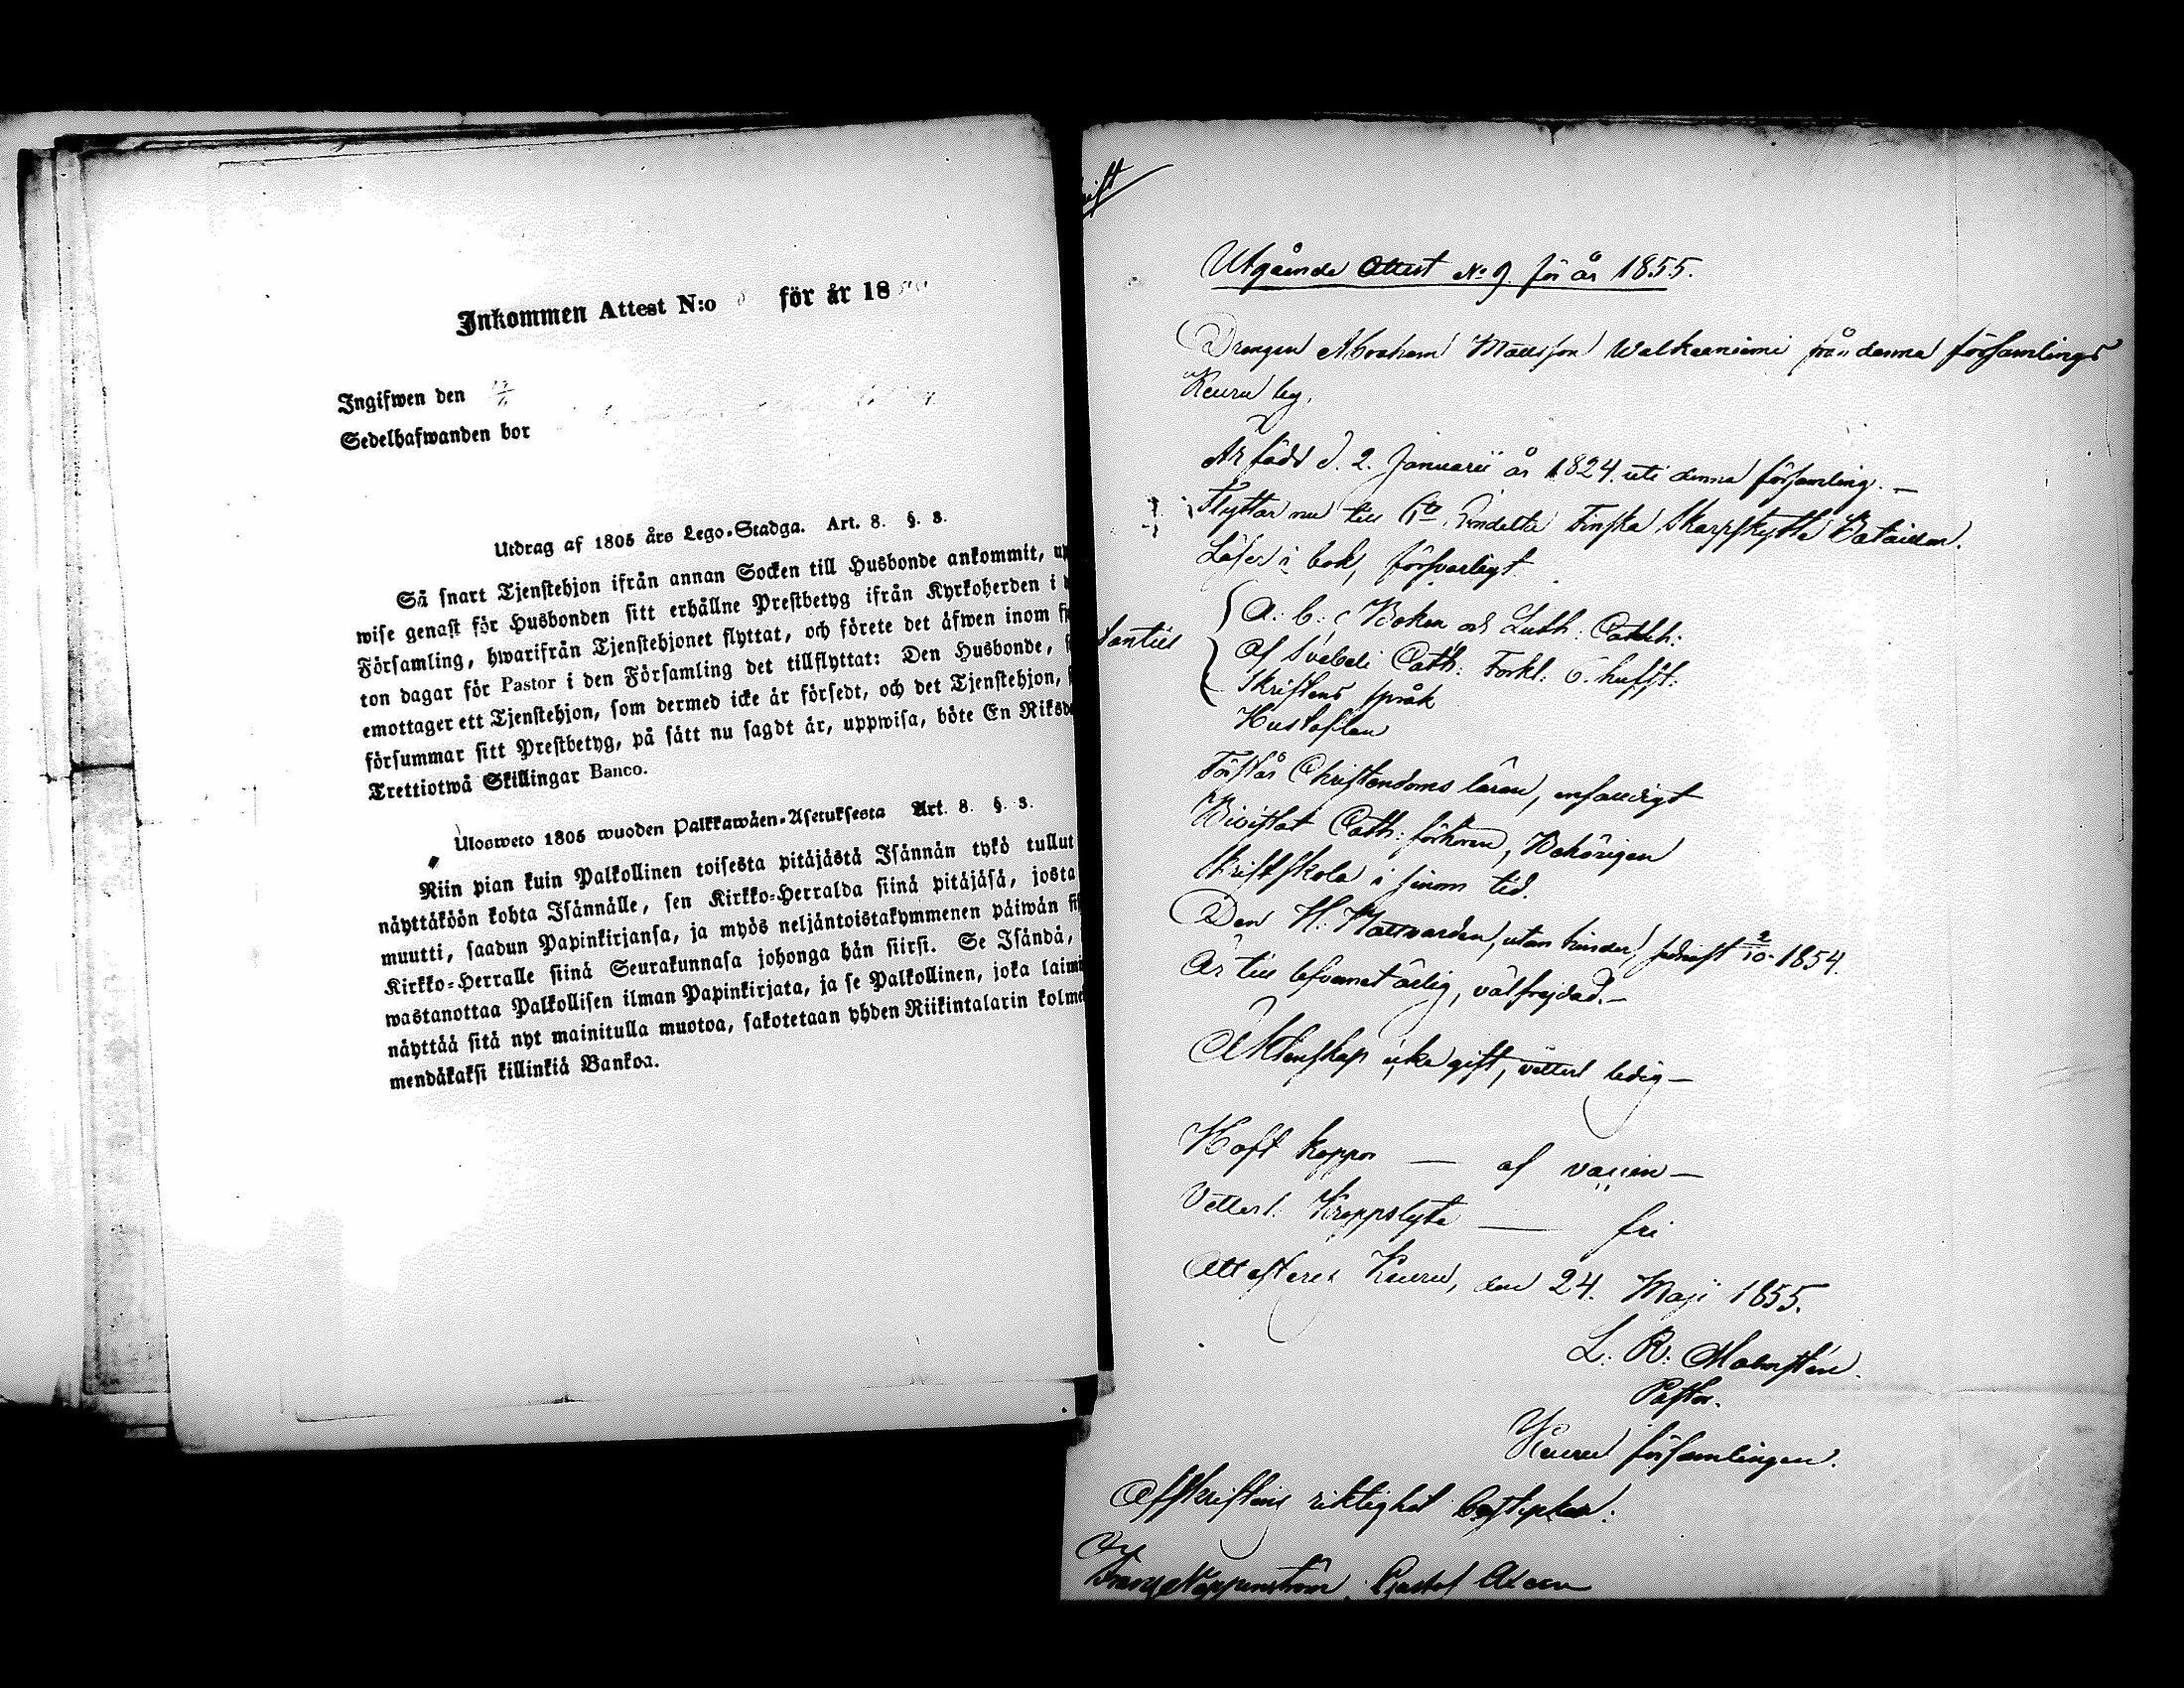 Inkommen Attest N:o för år 18
Ingifwen den
Sedelhafwanden bor
Utdrag af 1805 års Lego-Stadga. Art. 8. §. 3.
Så snart Tjenstehjon ifrån annan Socken till Husbonde ankommit, up
wise genast för Husbonden sitt erhållne Prestbetyg ifrån Kyrkoherden i d
Församling, hwarifrån Tjenstehjonet flyttat, och förete det äfwen inom
ton dagar för Pastor i den Församling det tillflyttat: Den Husbonde,
emottager ett Tjenstehjon, som dermed icke är försedt, och det Tjenstehjon,
försummar sitt Prestbetyg, på sätt nu sagdt är, uppwisa, böte En Riksd
Trettiotwå Skillingar Banco.
Ulosweto 1805 wuoden Palkkawäen-Asetuksesta Art. 8. §. 3.
Niin pian kuin Palkollinen toisesta pitäjästä Isännän tykö tullut
näyttäköön kohta Isännälle, sen Kirkko-Herralda siinä pitäjäsä, josta
muutti, saadun Papinkirjansa, ja myös neljäntoistakymmenen päiwän
Kirkko-Herralle siinä Seurakunnasa johonga hän siirsi. Se Isändä,
wastanottaa Palkollisen ilman Papinkirjata, ja se Palkollinen, joka laimi
näyttää sitä nyt mainitulla muotoa, sakotetaan yhden Riikintalarin kolme
mendäkaksi killinkiä Bankoa.
rift
Utgående Attest No 9. för år 1855.
Drengen Abraham Mattsson Walkeaniemi från denna församlings
Keuru by,
Är född d. 2. Januarii år 1824. uti denna församling. —
Flyttar nu till 6te Indelta Finska Skarpskytte Batailon.
Läser i bok, försvarligt.
A: b: c Boken och Luth: Catech:
Af Svebeli Cath: Förkl: 6. hufst:
Skriftens språk
Hustaflan
Förstår Christendoms läran, enfaldigt
Bivistat Cath: förhören, Behörigen
Skriftskola i sinom tid.
Den H: Nattvarden, utan hinder, sednast 2/10 1854.
Är till lefvernet ärlig, välfrejdad. —
Äktenskap icke gift, vetterl ledig —
Haft koppor — af vaccin —
Vetterl. Kroppslyte — fri
Attesterar Keuru, den 24. Maji 1855.
L: R: Malmstén.
Pastor.
Keuru församlingen.
Afskriftens riktighet
Gustaf